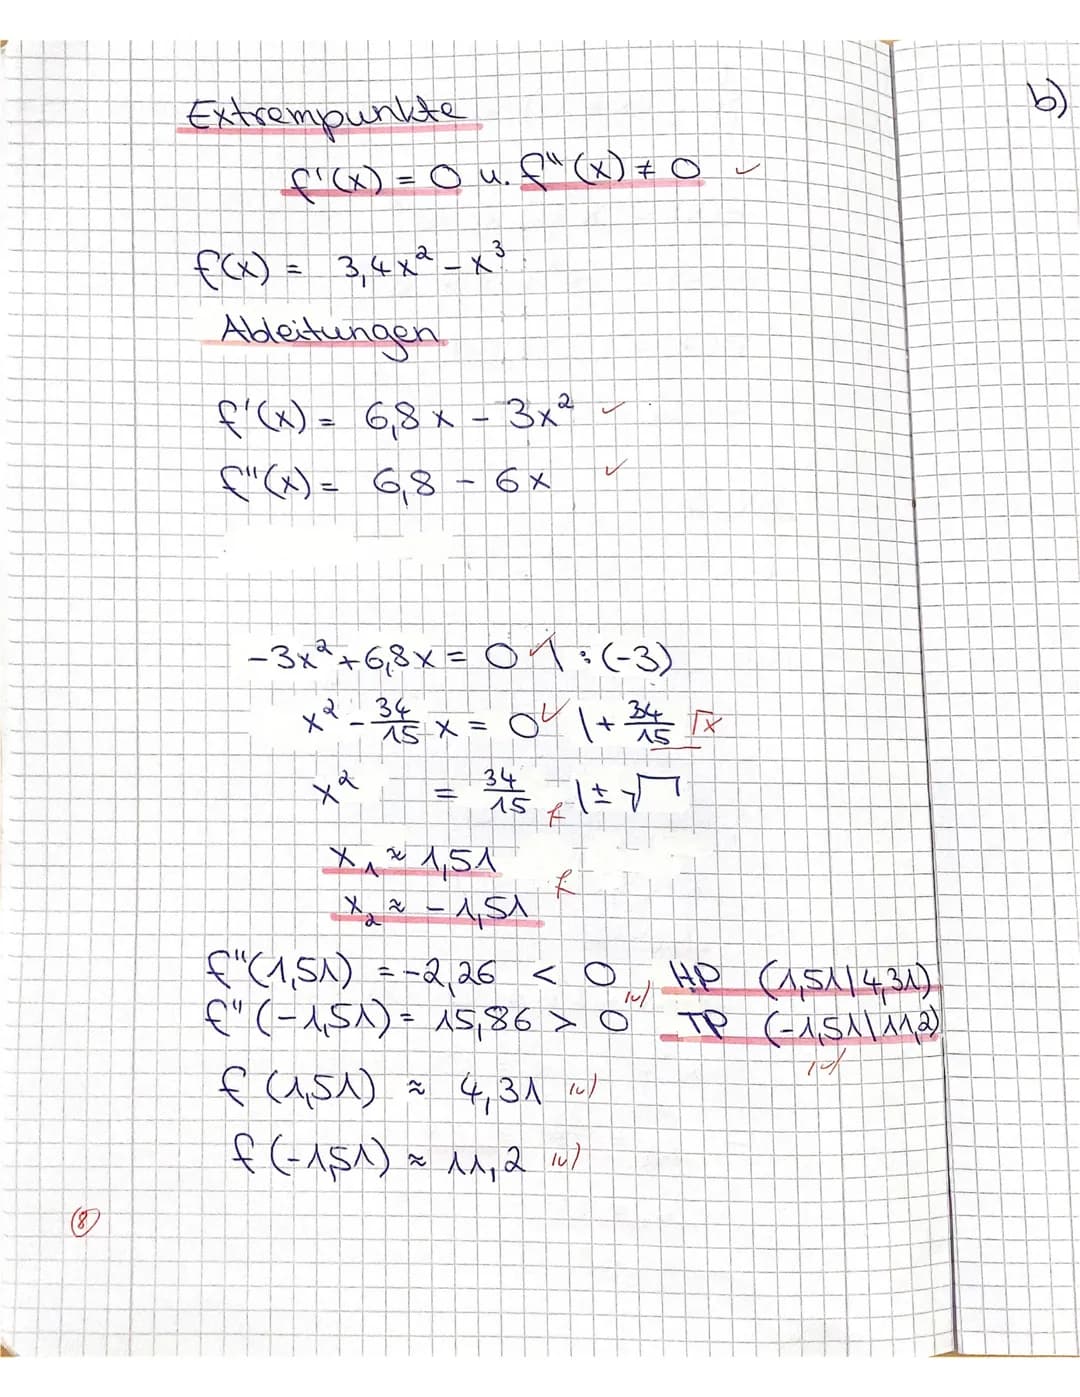 Extrempunkte
f'(x) = 0 u. f"(x) ≠ 0 ✓
f(x) = 3,4x² - x³
Ableitungen
f'(x) = 6,8x - 3x² ✓
f"(x) = 6,8 - 6x ✓
-3x² + 6,8x = 0 ✓ | : (-3)
x² - 34/15 x = 0 ✓ | + 34/15 Γx
x² = 34/15 f | ± √
x₁ ≈ 1,51
x₂ ≈ - 1,51 f
f"(1,51) = -2,26 < 0 HP (1,51|4,31)
f"(-1,51) = 15,86 > 0 (✓) TP (-1,51|11,2)
(✓)
f(1,51) ≈ 4,31 (✓)
f(-1,51) ≈ 11,2 (✓)
8
b)